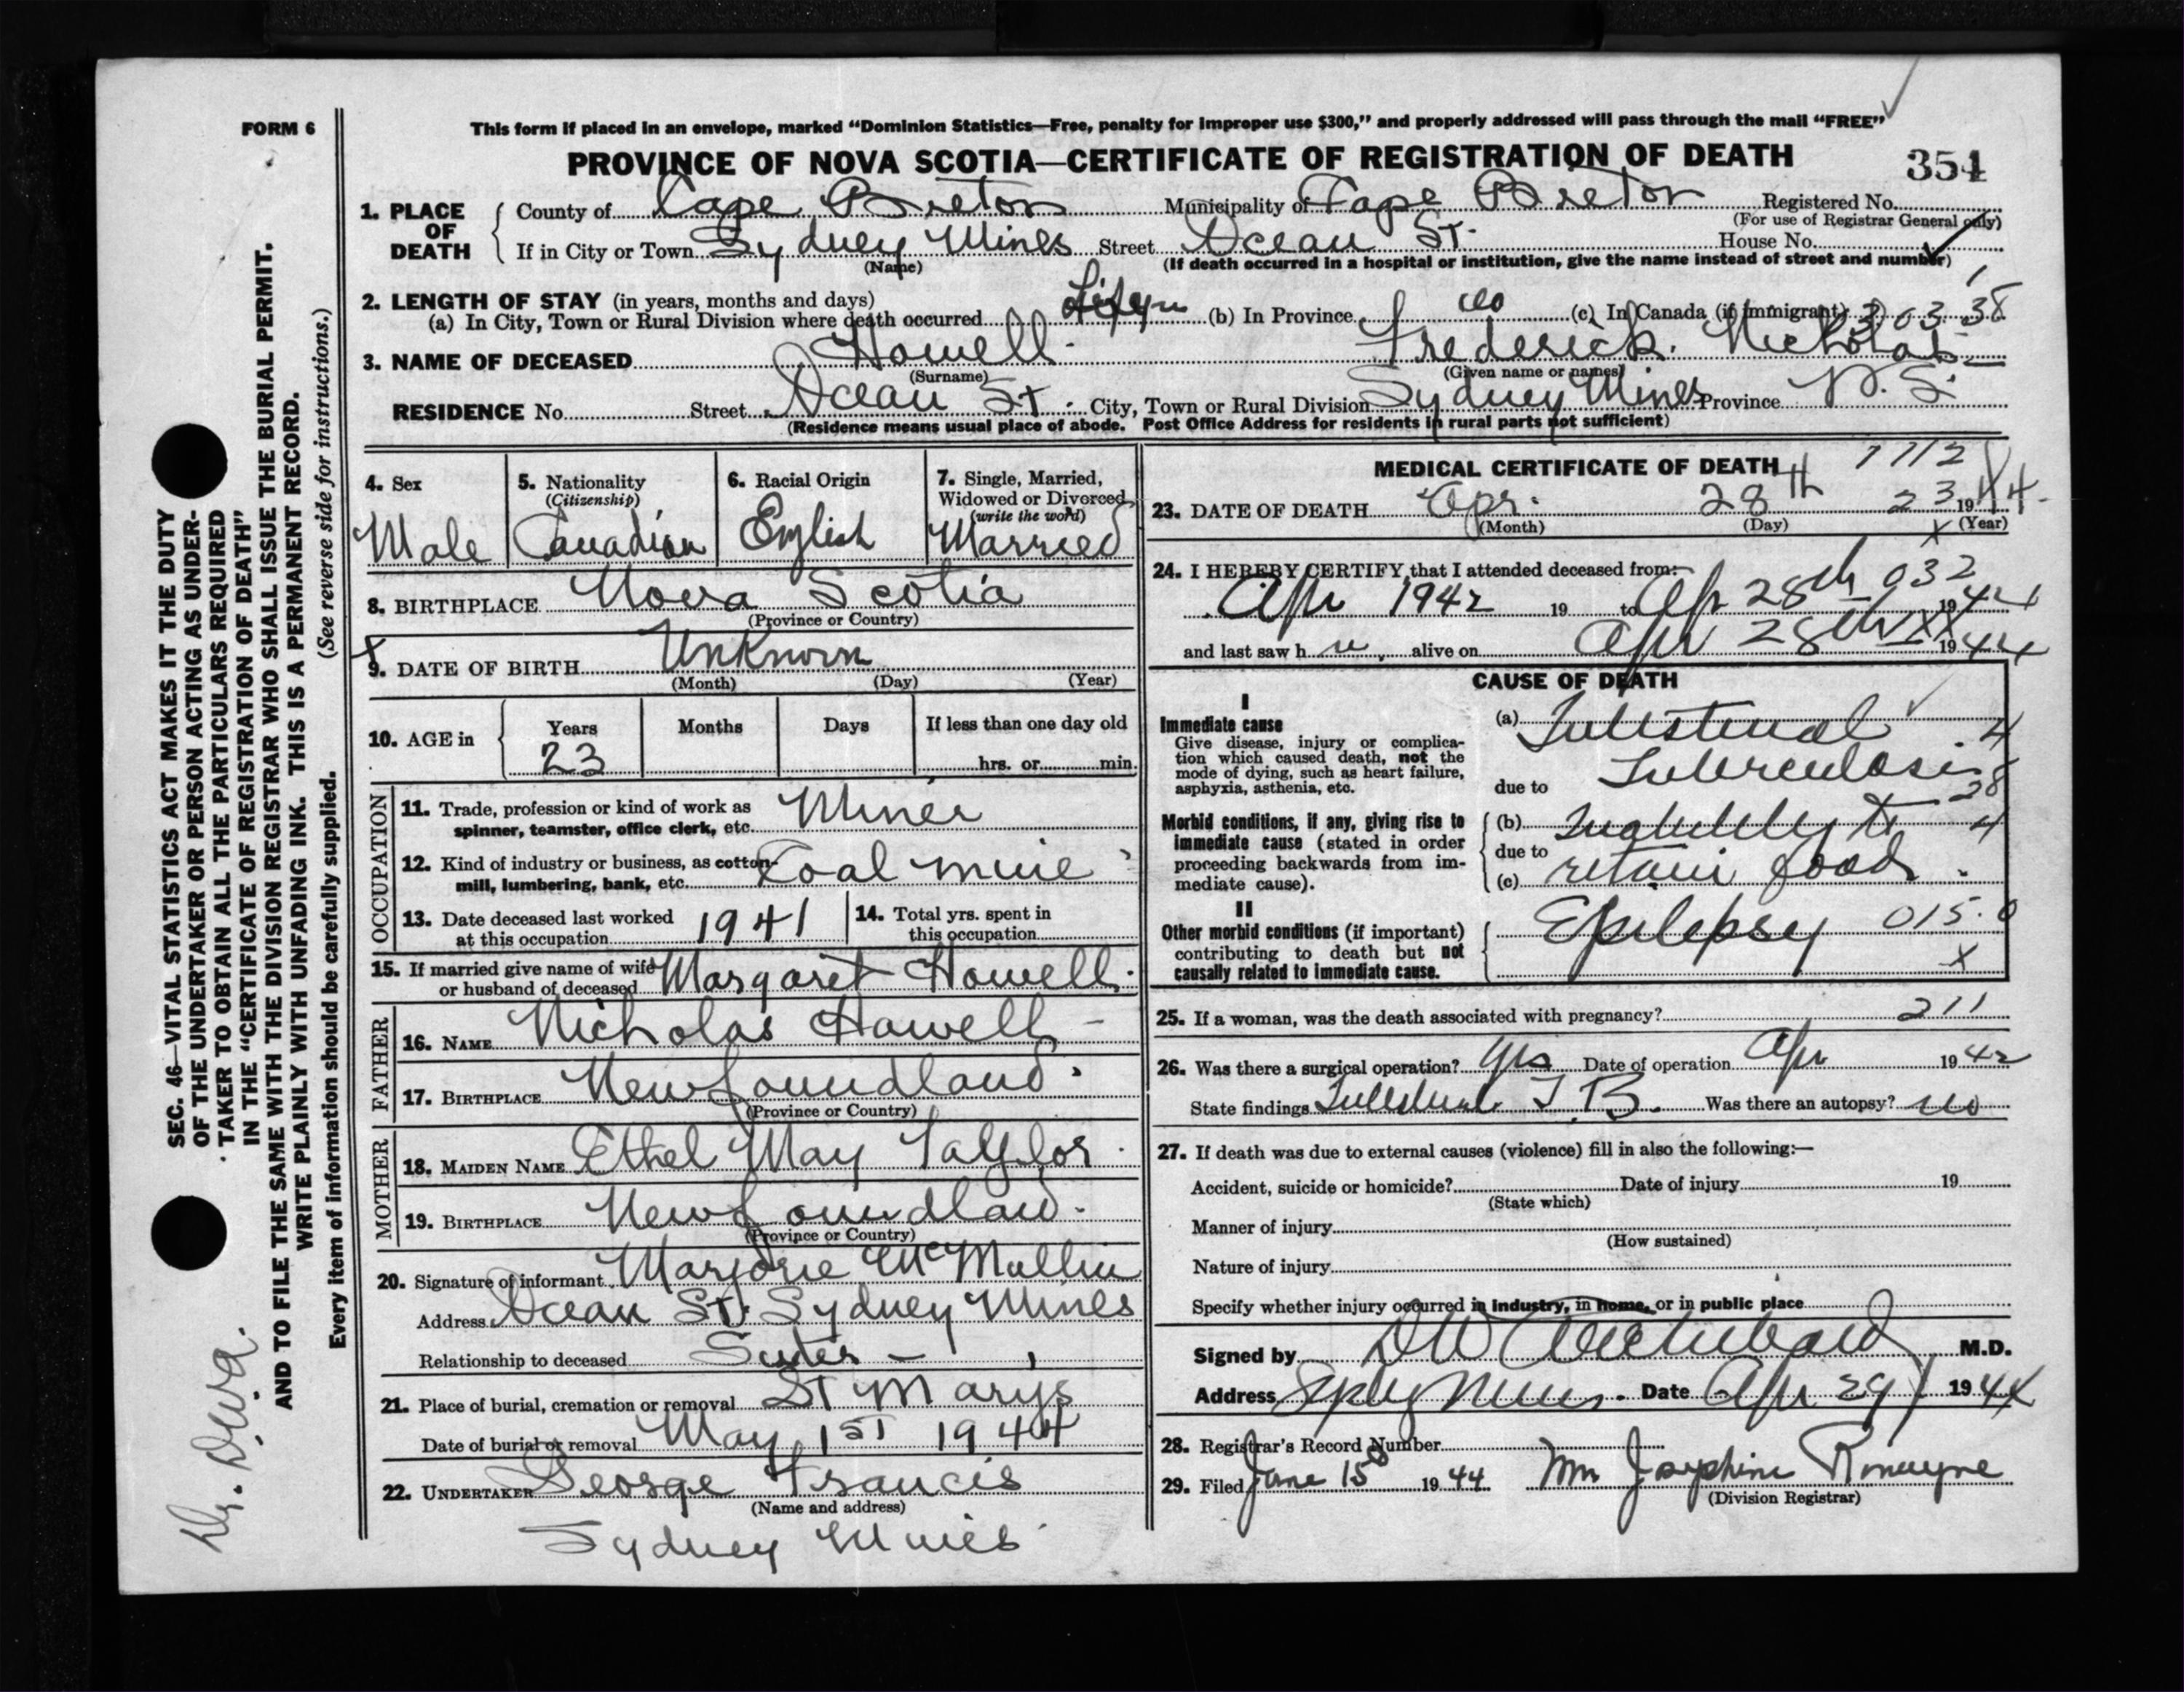 FORM 6
This form if placed in an envelope, marked “Dominion Statistics—Free, penalty for improper use $300,” and properly addressed will pass through the mail “FREE”
PROVINCE OF NOVA SCOTIA—CERTIFICATE OF REGISTRATION OF DEATH
354
1. PLACE OF DEATH
County of Cape Breton Municipality of Cape Breton Registered No.
(For use of Registrar General only)
If in City or Town Sydney Mines Street Ocean St. House No.
(Name) (If death occurred in a hospital or institution, give the name instead of street and number)
2. LENGTH OF STAY (in years, months and days)
(a) In City, Town or Rural Division where death occurred (b) In Province do (c) In Canada (if immigrant)
3. NAME OF DECEASED Howell Frederick. Nicholas
(Surname) (Given name or names)
RESIDENCE No. Street Ocean St. City, Town or Rural Division Sydney Mines Province N. S.
(Residence means usual place of abode. Post Office Address for residents in rural parts not sufficient)
4. Sex 5. Nationality 6. Racial Origin 7. Single, Married,
(Citizenship) Widowed or Divorced
(write the word)
Male Canadian English Married
8. BIRTHPLACE Nova Scotia
(Province or Country)
9. DATE OF BIRTH Unknown
(Month) (Day) (Year)
10. AGE in Years Months Days If less than one day old
23 hrs. or min.
OCCUPATION
11. Trade, profession or kind of work as Miner
spinner, teamster, office clerk, etc.
12. Kind of industry or business, as cotton- Coal mine
mill, lumbering, bank, etc.
13. Date deceased last worked 1941 14. Total yrs. spent in
at this occupation this occupation
15. If married give name of wife Margaret Howell.
or husband of deceased
FATHER
16. NAME Nicholas Howell
17. BIRTHPLACE Newfoundland
(Province or Country)
MOTHER
18. MAIDEN NAME Ethel May Taylor
19. BIRTHPLACE Newfoundland.
(Province or Country)
20. Signature of informant Marjorie McMullin
Address Ocean St. Sydney Mines
Relationship to deceased Sister
21. Place of burial, cremation or removal St Marys
Date of burial or removal May 1st 1944
22. UNDERTAKER George Francis
(Name and address)
Sydney Mines
MEDICAL CERTIFICATE OF DEATH
23. DATE OF DEATH Apr. 28th 1944.
(Month) (Day) (Year)
24. I HEREBY CERTIFY that I attended deceased from:
Apr 1942 19 to Ap 28th 1944
032
and last saw h alive on Apr 28th 1944
CAUSE OF DEATH
I
Immediate cause
Give disease, injury or complica-
tion which caused death, not the
mode of dying, such as heart failure,
asphyxia, asthenia, etc.
(a) Intestinal
due to Tuberculosis
Morbid conditions, if any, giving rise to
immediate cause (stated in order
proceeding backwards from im-
mediate cause).
(b) to
due to
(c) retain food
II
Other morbid conditions (if important)
contributing to death but not
causally related to immediate cause.
Epilepsy 015.0
X
25. If a woman, was the death associated with pregnancy? 211
26. Was there a surgical operation? yes Date of operation Apr 1942
State findings Intestinal T.B. Was there an autopsy? no
27. If death was due to external causes (violence) fill in also the following:—
Accident, suicide or homicide? Date of injury 19
(State which)
Manner of injury
(How sustained)
Nature of injury
Specify whether injury occurred in industry, in home, or in public place
Signed by D W Archibald M.D.
Address Sydney Mines. Date Apr 29 1944
28. Registrar's Record Number
29. Filed June 15 1944 Mrs Josephine Ronayne
(Division Registrar)
SEC. 46—VITAL STATISTICS ACT MAKES IT THE DUTY
OF THE UNDERTAKER OR PERSON ACTING AS UNDER-
TAKER TO OBTAIN ALL THE PARTICULARS REQUIRED
IN THE “CERTIFICATE OF REGISTRATION OF DEATH”
AND TO FILE THE SAME WITH THE DIVISION REGISTRAR WHO SHALL ISSUE THE BURIAL PERMIT.
WRITE PLAINLY WITH UNFADING INK. THIS IS A PERMANENT RECORD.
Every item of information should be carefully supplied. (See reverse side for instructions.)